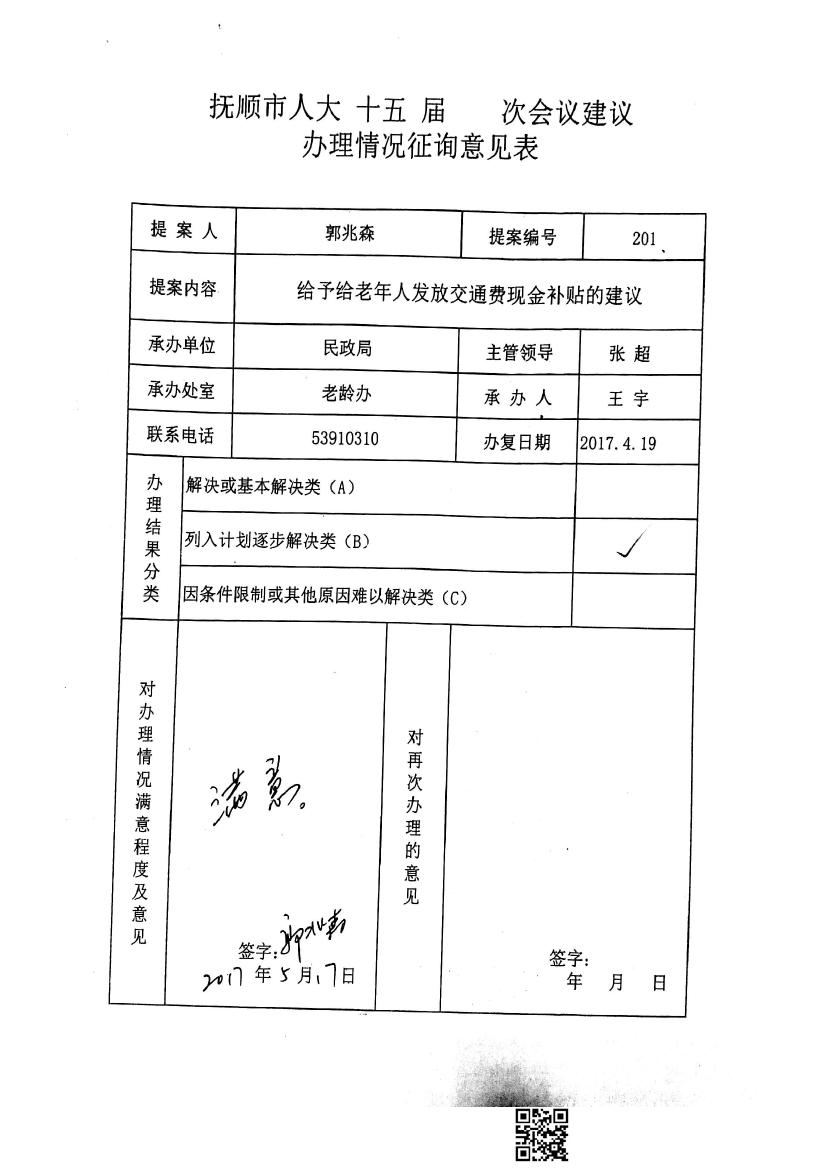 抚顺市人大 十五 届 次会议建议
办理情况征询意见表
提 案 人 郭兆森 提案编号 201
提案内容 给予给老年人发放交通费现金补贴的建议
承办单位 民政局 主管领导 张 超
承办处室 老龄办 承 办 人 王 宇
联系电话 53910310 办复日期 2017.4.19
办理结果分类
解决或基本解决类（A）
列入计划逐步解决类（B） ✓
因条件限制或其他原因难以解决类（C）
对办理情况满意程度及意见
满意。
签字：
2017 年 5 月 17 日
对再次办理的意见
签字：
年 月 日